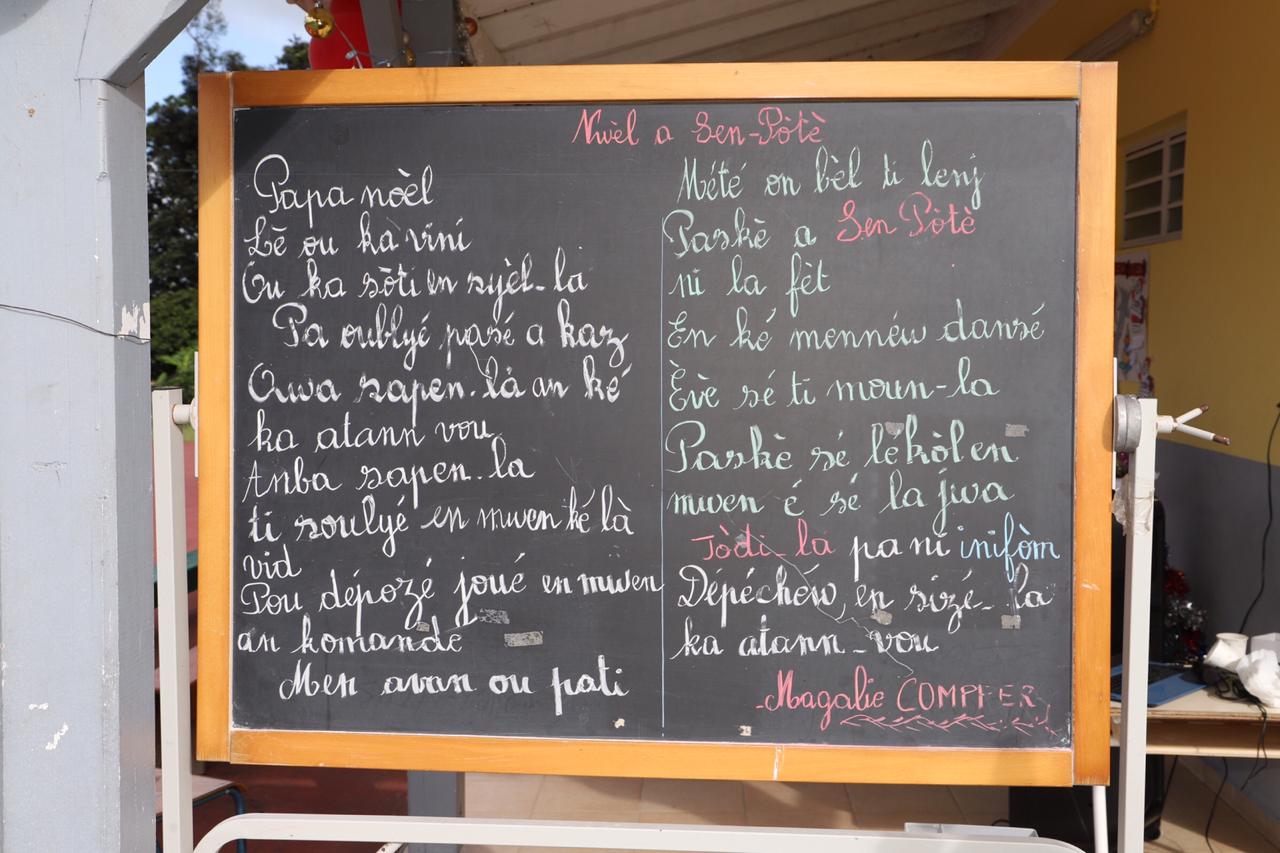 Nwèl a Sen-Pòtè
Papa nòèl
Lè ou ka vini
Ou ka sòti en syèl-la
Pa oublyé pasé a kaz
Owa sapen-là an ké
ka atann vou
Anba sapen-la
ti soulyé en mwen ké là
vid
Pou dépozé joué en mwen
an komandé
Men avan ou pati
Mété on bèl ti lenj
Paskè a Sen Pòtè
ni la fèt
En ké mennéw dansé
Èvè sé ti moun-la
Paskè sé lékòl en
mwen é sé la jwa
Jòdi-la pa ni inifòm
Dépéchéw, en sizé-la
ka atann-vou
-Magalie COMPPER